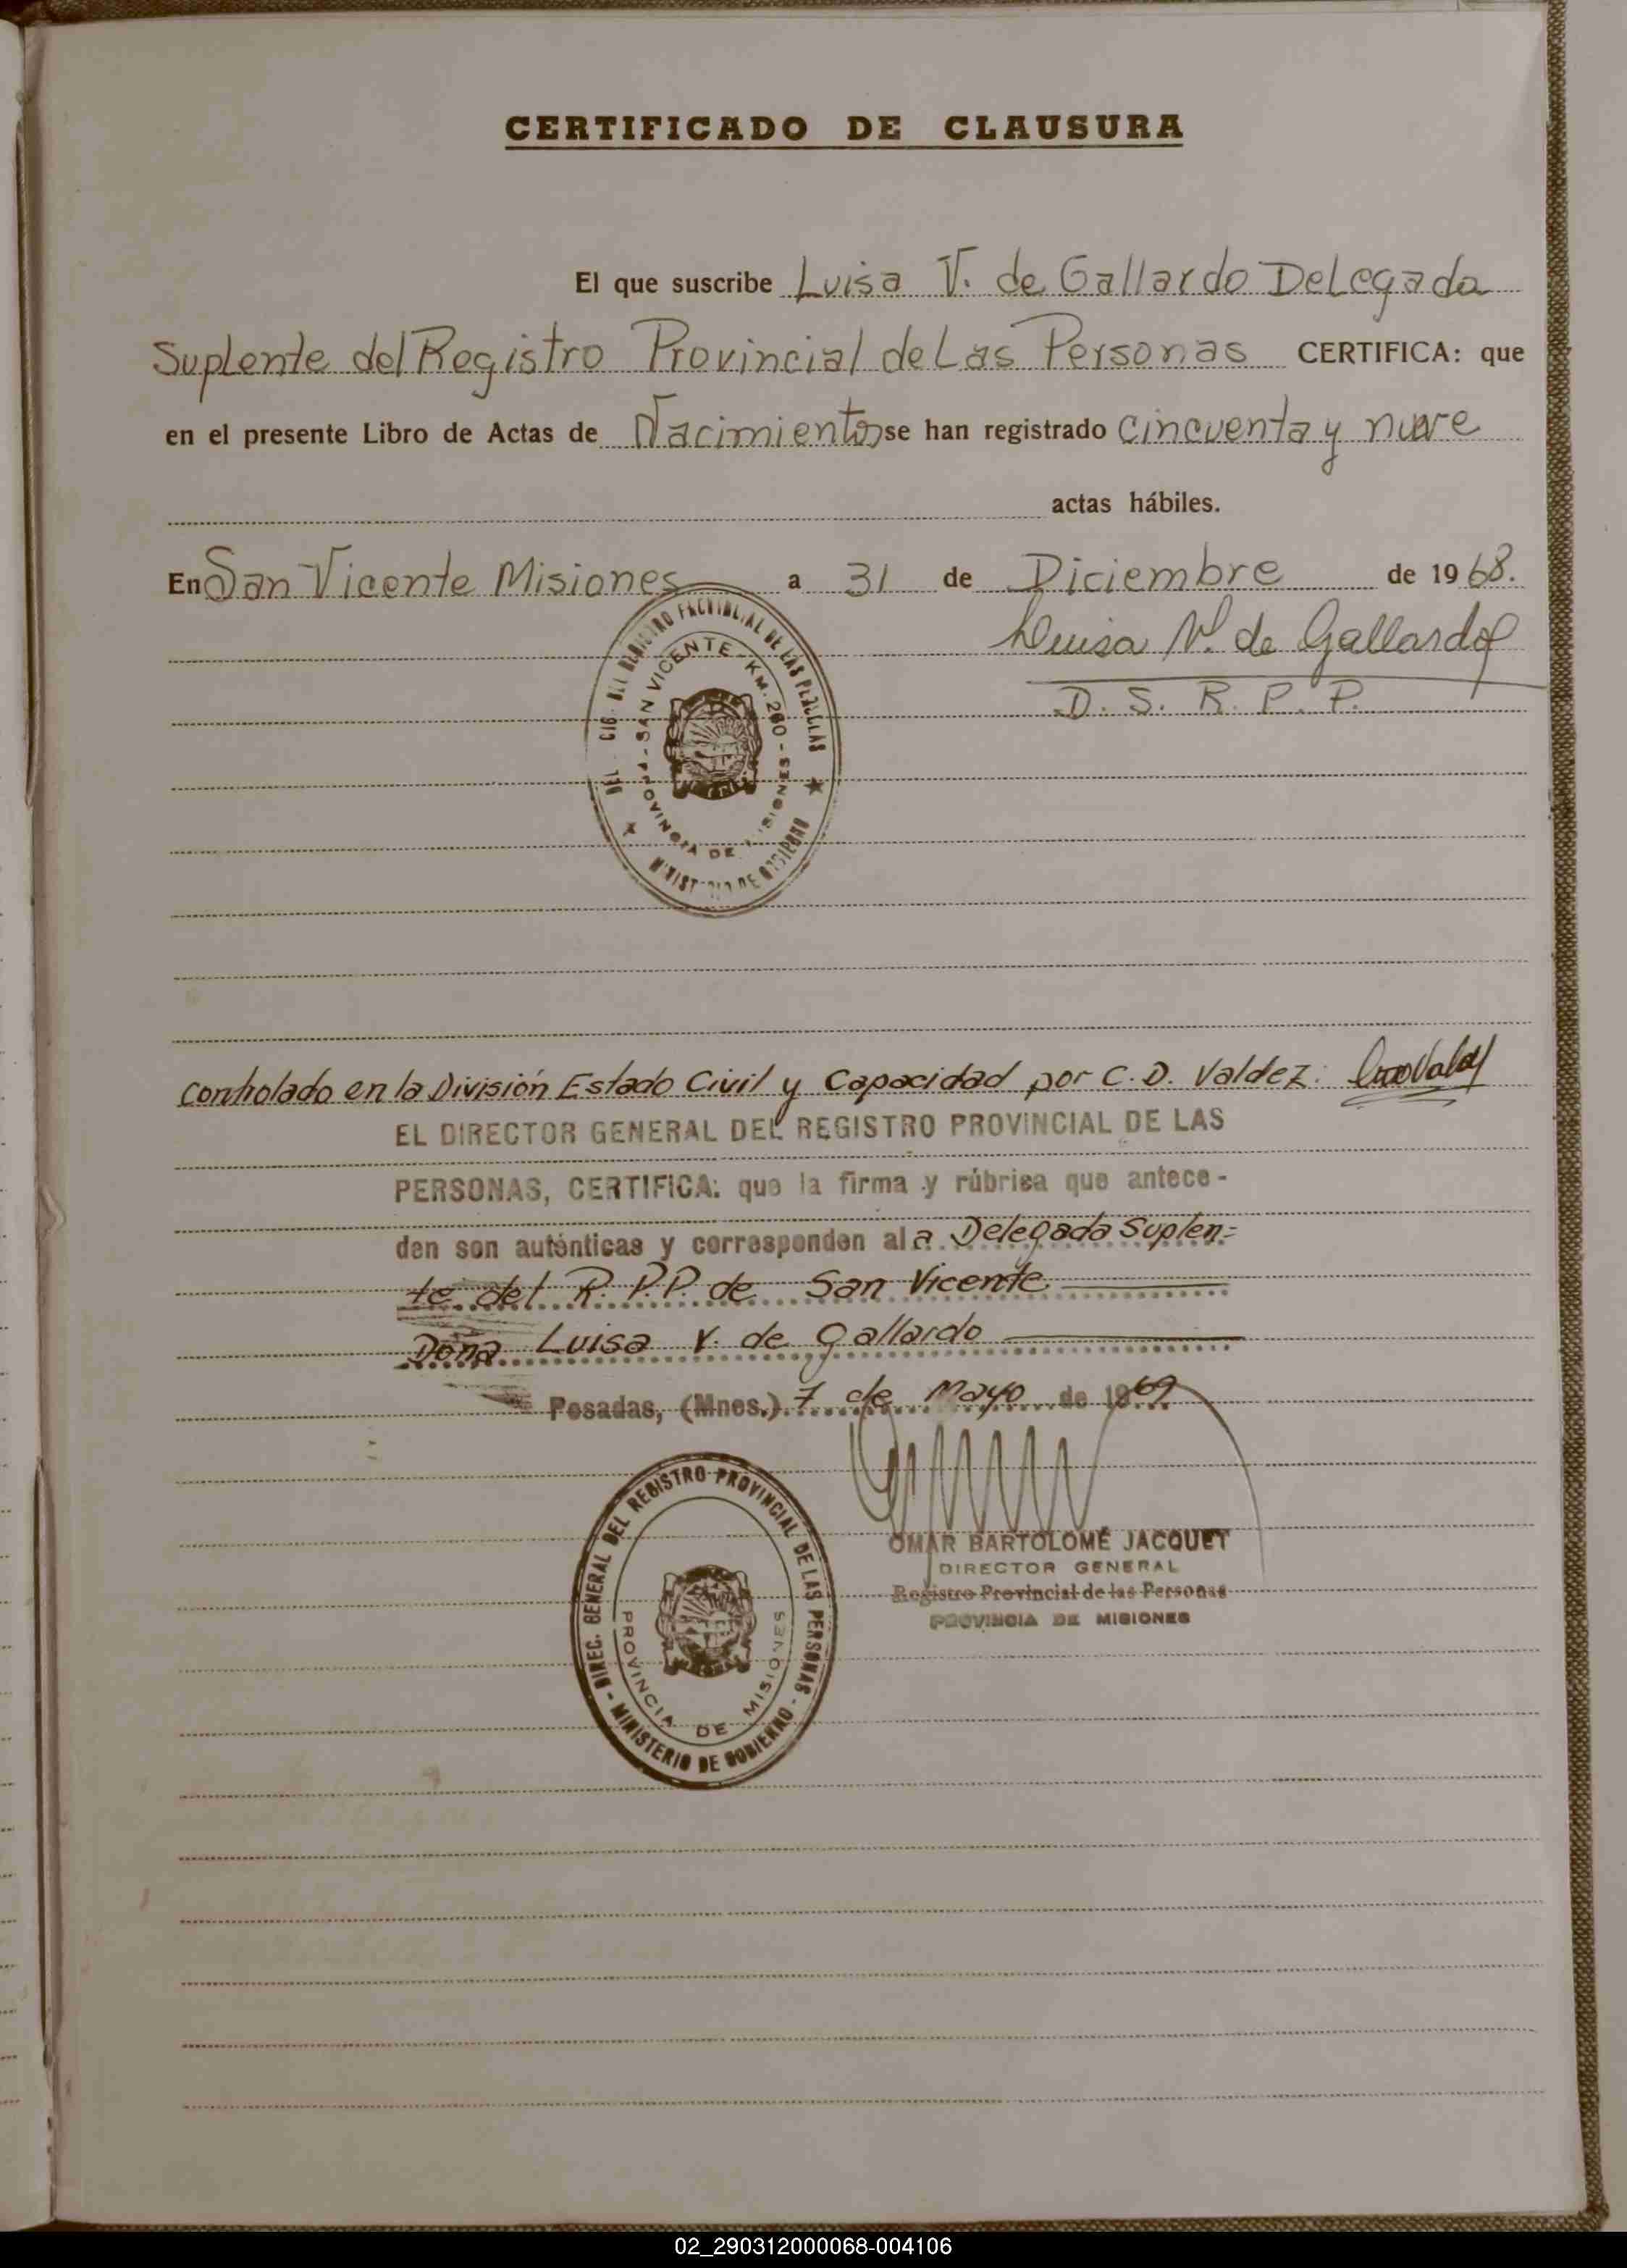 CERTIFICADO DE CLAUSURA
El que suscribe Luisa V. de Gallardo Delegada
Suplente del Registro Provincial de Las Personas CERTIFICA: que
en el presente Libro de Actas de Nacimientos se han registrado cincuenta y nueve
actas hábiles.
En San Vicente Misiones a 31 de Diciembre de 1968.
Luisa V. de Gallardo
D. S. R. P. P.
DEL REGISTRO PROVINCIAL DE LAS
SAN VICENTE - KM. 290 - PROVINCIA DE MISIONES
MINISTERIO DE GOBIERNO
Controlado en la División Estado Civil y Capacidad por C. D. Valdez:
EL DIRECTOR GENERAL DEL REGISTRO PROVINCIAL DE LAS
PERSONAS, CERTIFICA: que la firma y rúbrica que antece-
den son auténticas y corresponden al a Delegada Suplen=
te del R. P. P. de San Vicente
Doña Luisa V. de Gallardo
Posadas, (Mnes.) 7 de Mayo de 1969
DIREC. GENERAL DEL REGISTRO PROVINCIAL DE LAS PERSONAS - MINISTERIO DE GOBIERNO -
PROVINCIA DE MISIONES
OMAR BARTOLOMÉ JACQUET
DIRECTOR GENERAL
Registro Provincial de las Personas
PROVINCIA DE MISIONES
02_290312000068-004106